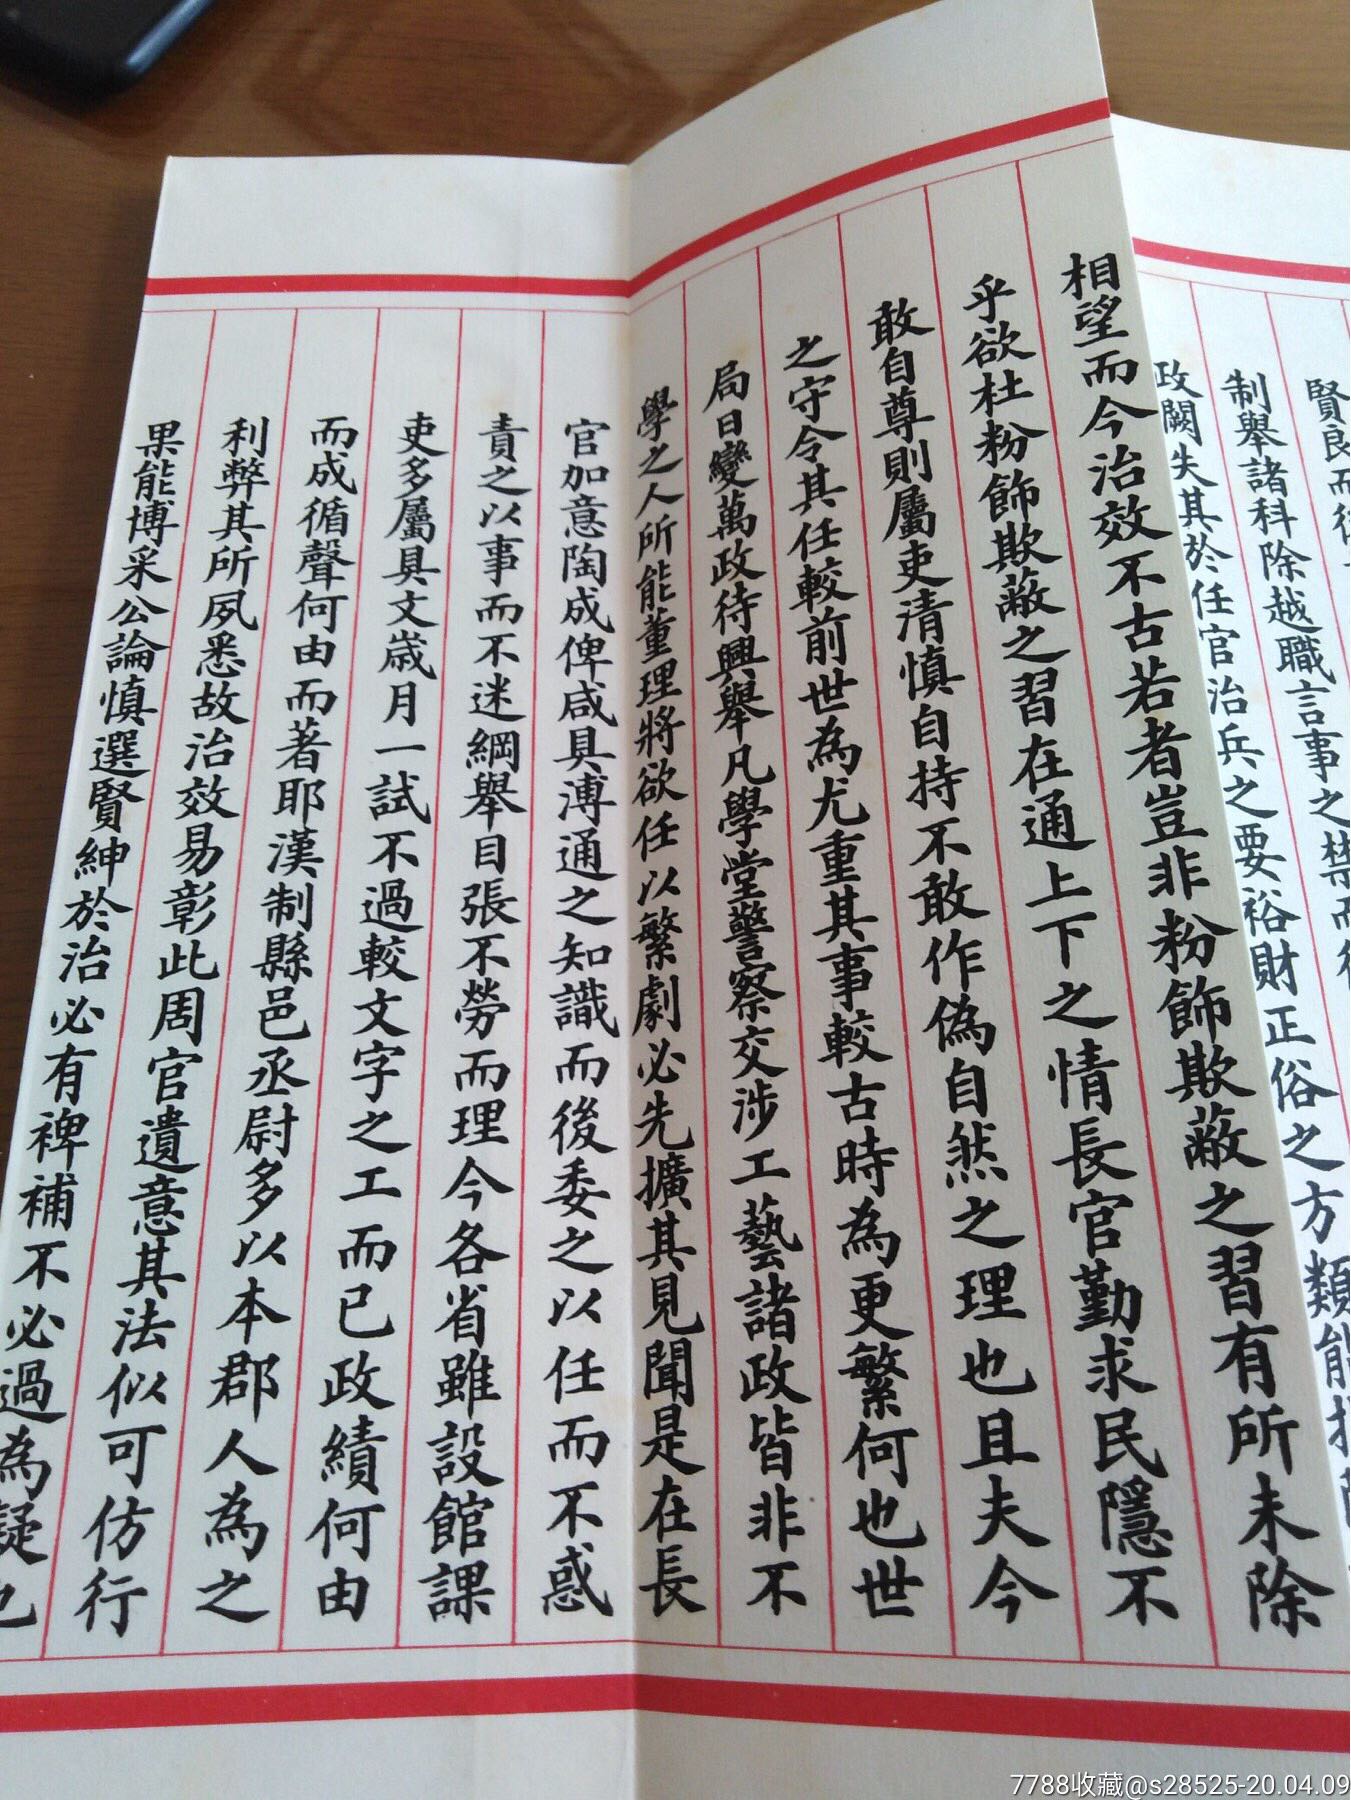 賢良而
制舉諸科除越職言事之禁而
政闕失其於任官治兵之要裕財正俗之方類能
相望而今治效不古若者豈非粉飾欺蔽之習有所未除
乎欲杜粉飾欺蔽之習在通上下之情長官勤求民隱不
敢自尊則屬吏清慎自持不敢作偽自然之理也且夫今
之守令其任較前世為尤重其事較古時為更繁何也世
局日變萬政待興舉凡學堂警察交涉工藝諸政皆非不
學之人所能董理將欲任以繁劇必先擴其見聞是在長
官加意陶成俾咸具溥通之知識而後委之以任而不惑
責之以事而不迷綱舉目張不勞而理今各省雖設館課
吏多屬具文歲月一試不過較文字之工而已政績何由
而成循聲何由而著耶漢制縣邑丞尉多以本郡人為之
利弊其所夙悉故治效易彰此周官遺意其法似可仿行
果能博采公論慎選賢紳於治必有裨補不必過為疑也
7788收藏@s28525-20.04.09